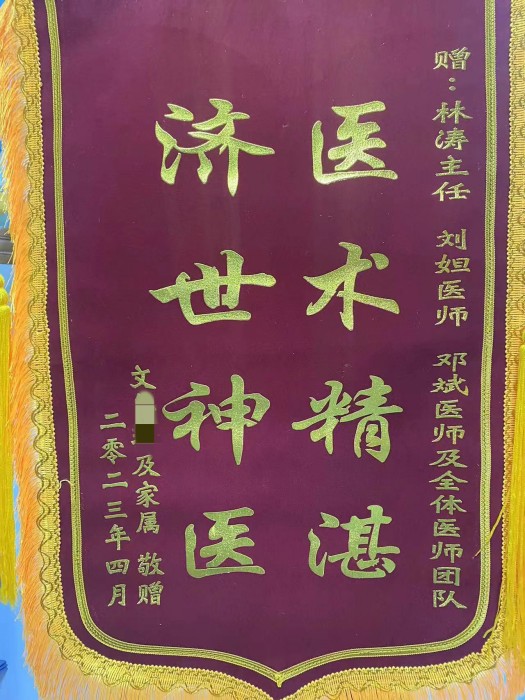 赠：林涛主任 刘妲医师 邓斌医师及全体医师团队
医术精湛
济世神医
文 及家属 敬赠
二零二三年四月